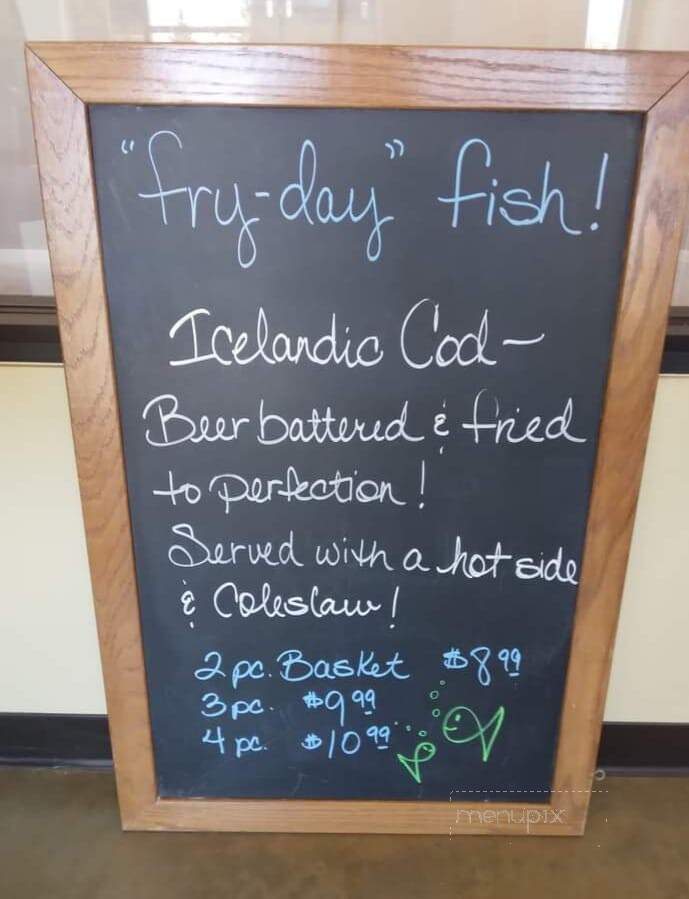 "fry-day" fish!
Icelandic Cod-
Beer battered & fried
to perfection!
Served with a hot side
& Coleslaw!
2 pc. Basket $8 99
3 pc. $9 99
4 pc. $10 99
menupix